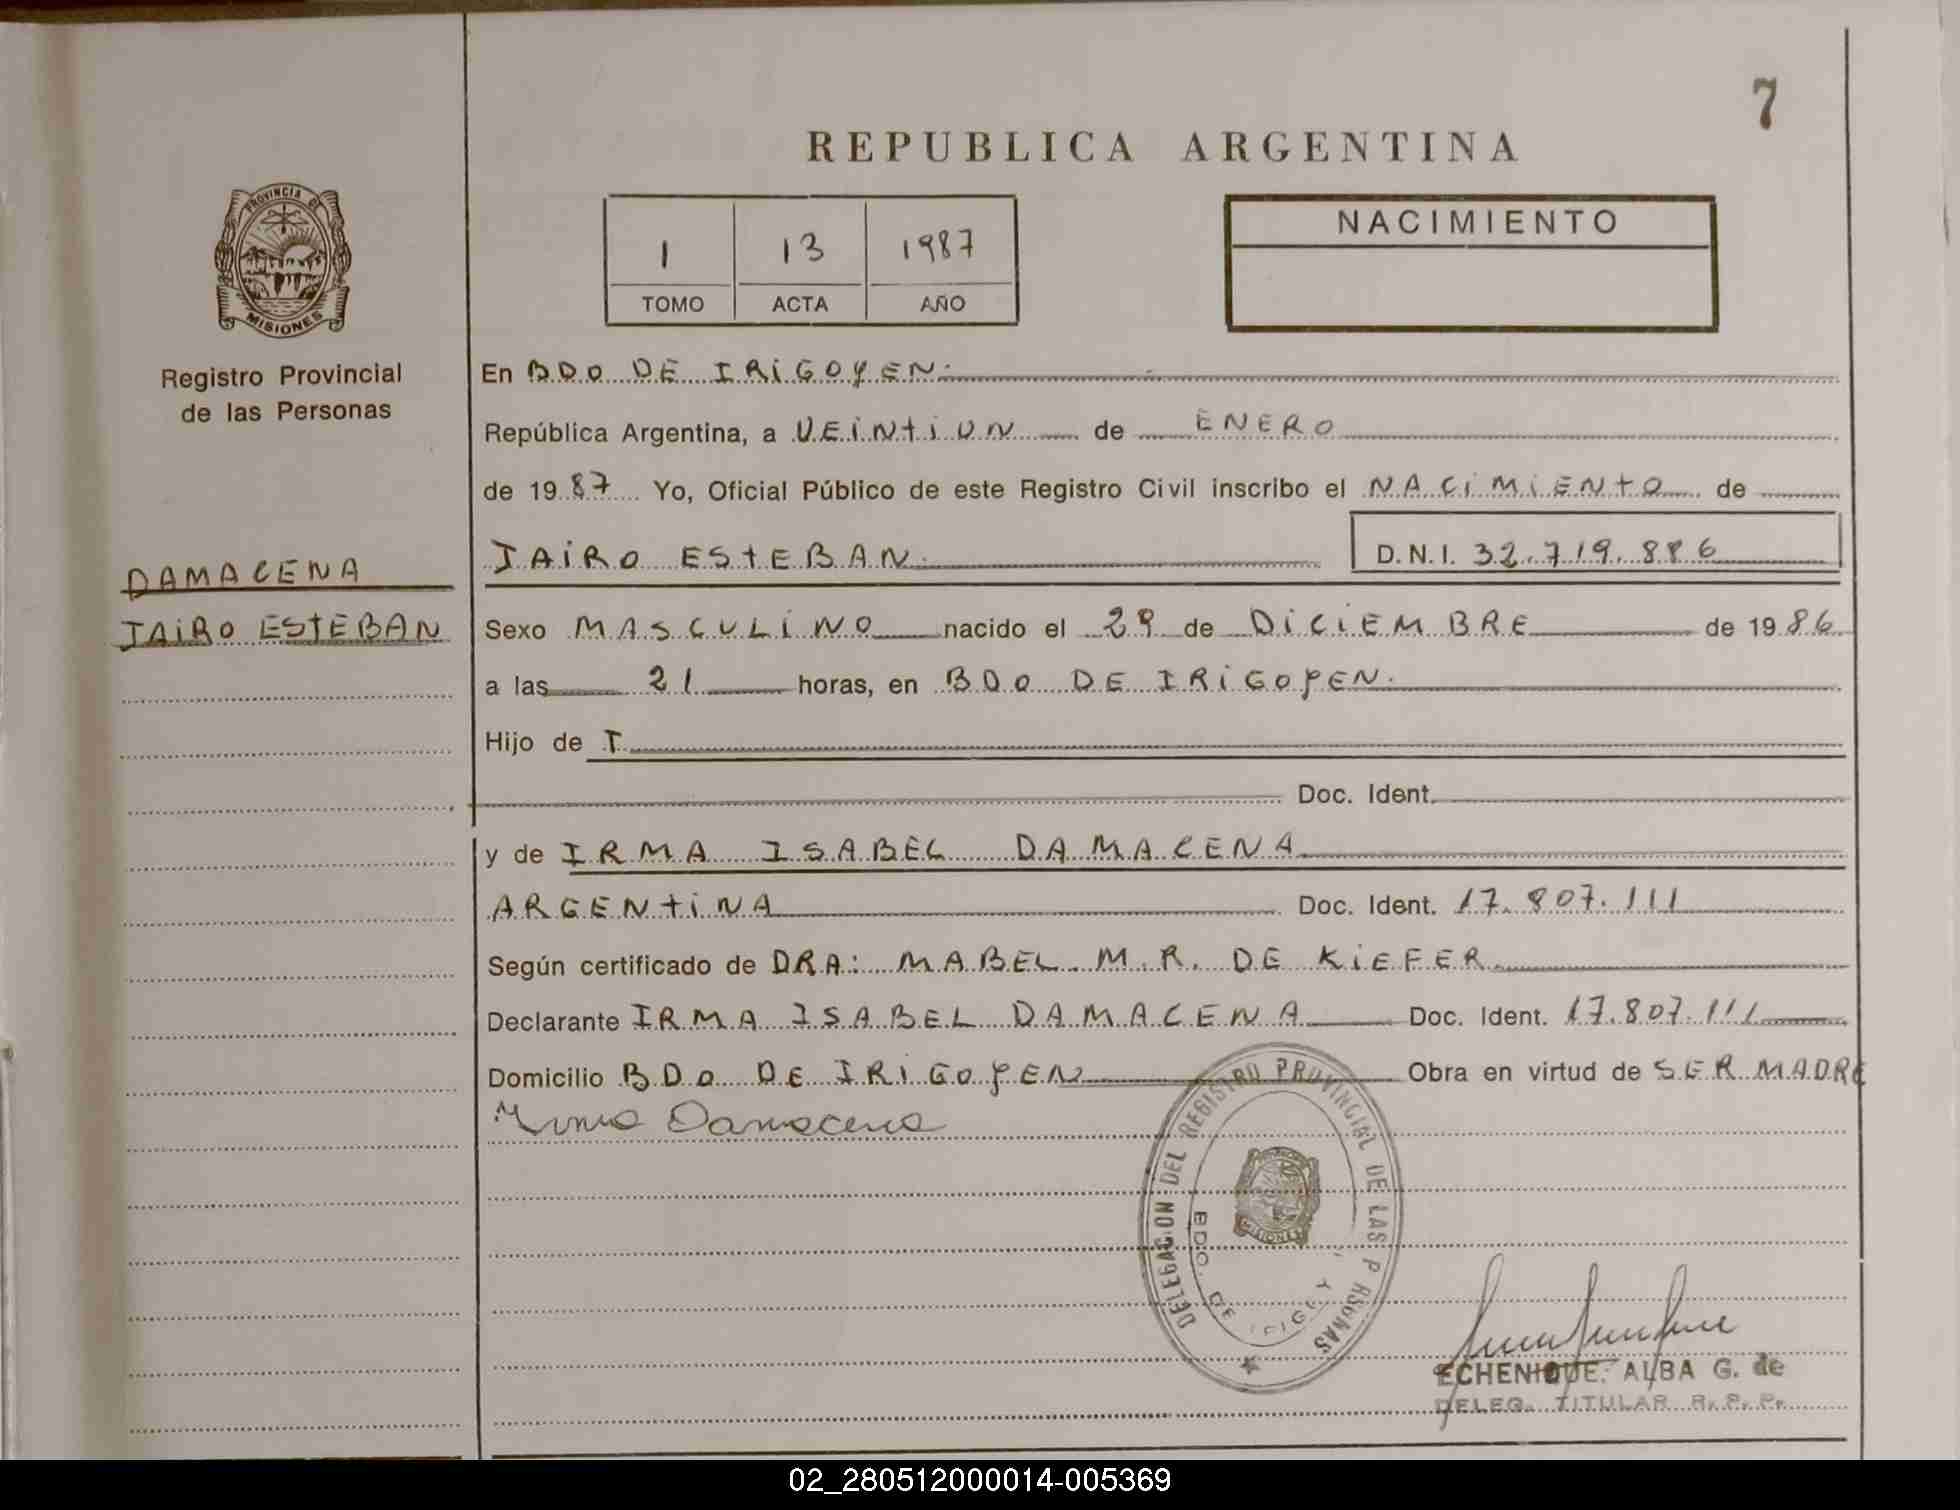 7
REPUBLICA ARGENTINA
PROVINCIA DE
MISIONES
Registro Provincial
de las Personas
1 13 1987
TOMO ACTA AÑO
NACIMIENTO
En BDO DE IRIGOYEN.
República Argentina, a VEINTIUN de ENERO
de 1987 Yo, Oficial Público de este Registro Civil inscribo el NACIMIENTO de
JAIRO ESTEBAN. D.N.I. 32.719.886
DAMACENA
JAIRO ESTEBAN
Sexo MASCULINO nacido el 29 de DICIEMBRE de 1986
a las 21 horas, en BDO DE IRIGOYEN.
Hijo de
Doc. Ident.
y de IRMA ISABEL DAMACENA
ARGENTINA Doc. Ident. 17.807.111
Según certificado de DRA: MABEL M.R. DE KIEFER
Declarante IRMA ISABEL DAMACENA Doc. Ident. 17.807.111
Domicilio BDO DE IRIGOYEN Obra en virtud de SER MADRE
Irma Damacena
DELEGACION DEL REGISTRO PROVINCIAL DE LAS P RSONAS
BDO. DE
MISIONES
ECHENIQUE. ALBA G. de
DELEG. TITULAR R. P. P.
02_280512000014-005369